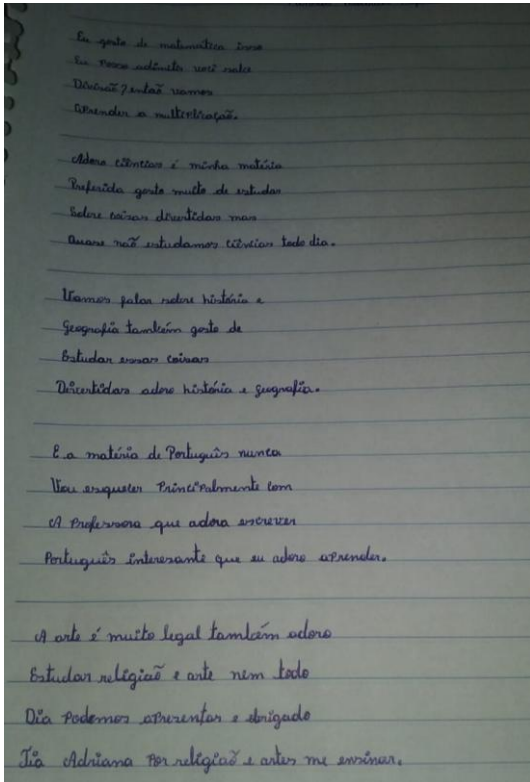 Eu gosto de matemática isso
Eu posso admitir você sabe
Divisão? então vamos
Aprender a multiplicação.
Adoro ciências é minha matéria
Preferida gosto muito de estudar
Sobre coisas divertidas mas
Quase não estudamos ciências todo dia.
Vamos falar sobre história e
Geografia também gosto de
Estudar essas coisas
Divertidas adoro história e geografia.
E a matéria de Português nunca
Vou esquecer Principalmente com
A Professora que adora escrever
Português interesante que eu adoro aprender.
A arte é muito legal também adoro
Estudar religião e arte nem todo
Dia Podemos apresentar e obrigado
Tia Adriana Por religião e artes me ensinar.